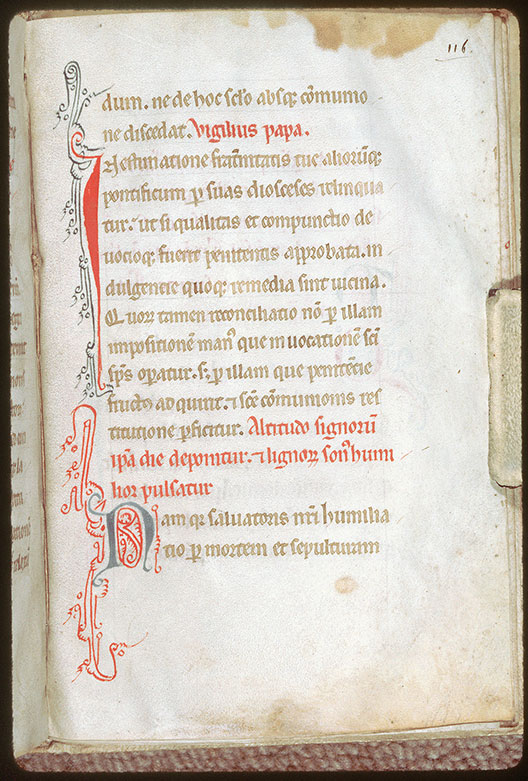 116
dum. ne de hoc sclo absq; cōmunio
ne discedat. Vigilius papa.
In estimatione fratnitatis tue alioruq;
pontificum p suas dioceses relinqua
tur. ut si qualitas et compunctio de
uotioq; fuerit penitentis approbata. in
dulgentie quoq; remedia sint uicina.
Quorz tamen reconciliatio nō p illam
impositionē man9 que in uocationē scī
sp̄s opatur. s; p illam que penitēcie
fructu adquirit. ⁊ scē cōmunionis res
titutione pficitur. Altitudo signorū
ipā die deponitur. ⁊ lignorz son9 humi
lior pulsatur
Nam qr saluatoris nrī humilia
tio p mortem et sepulturam